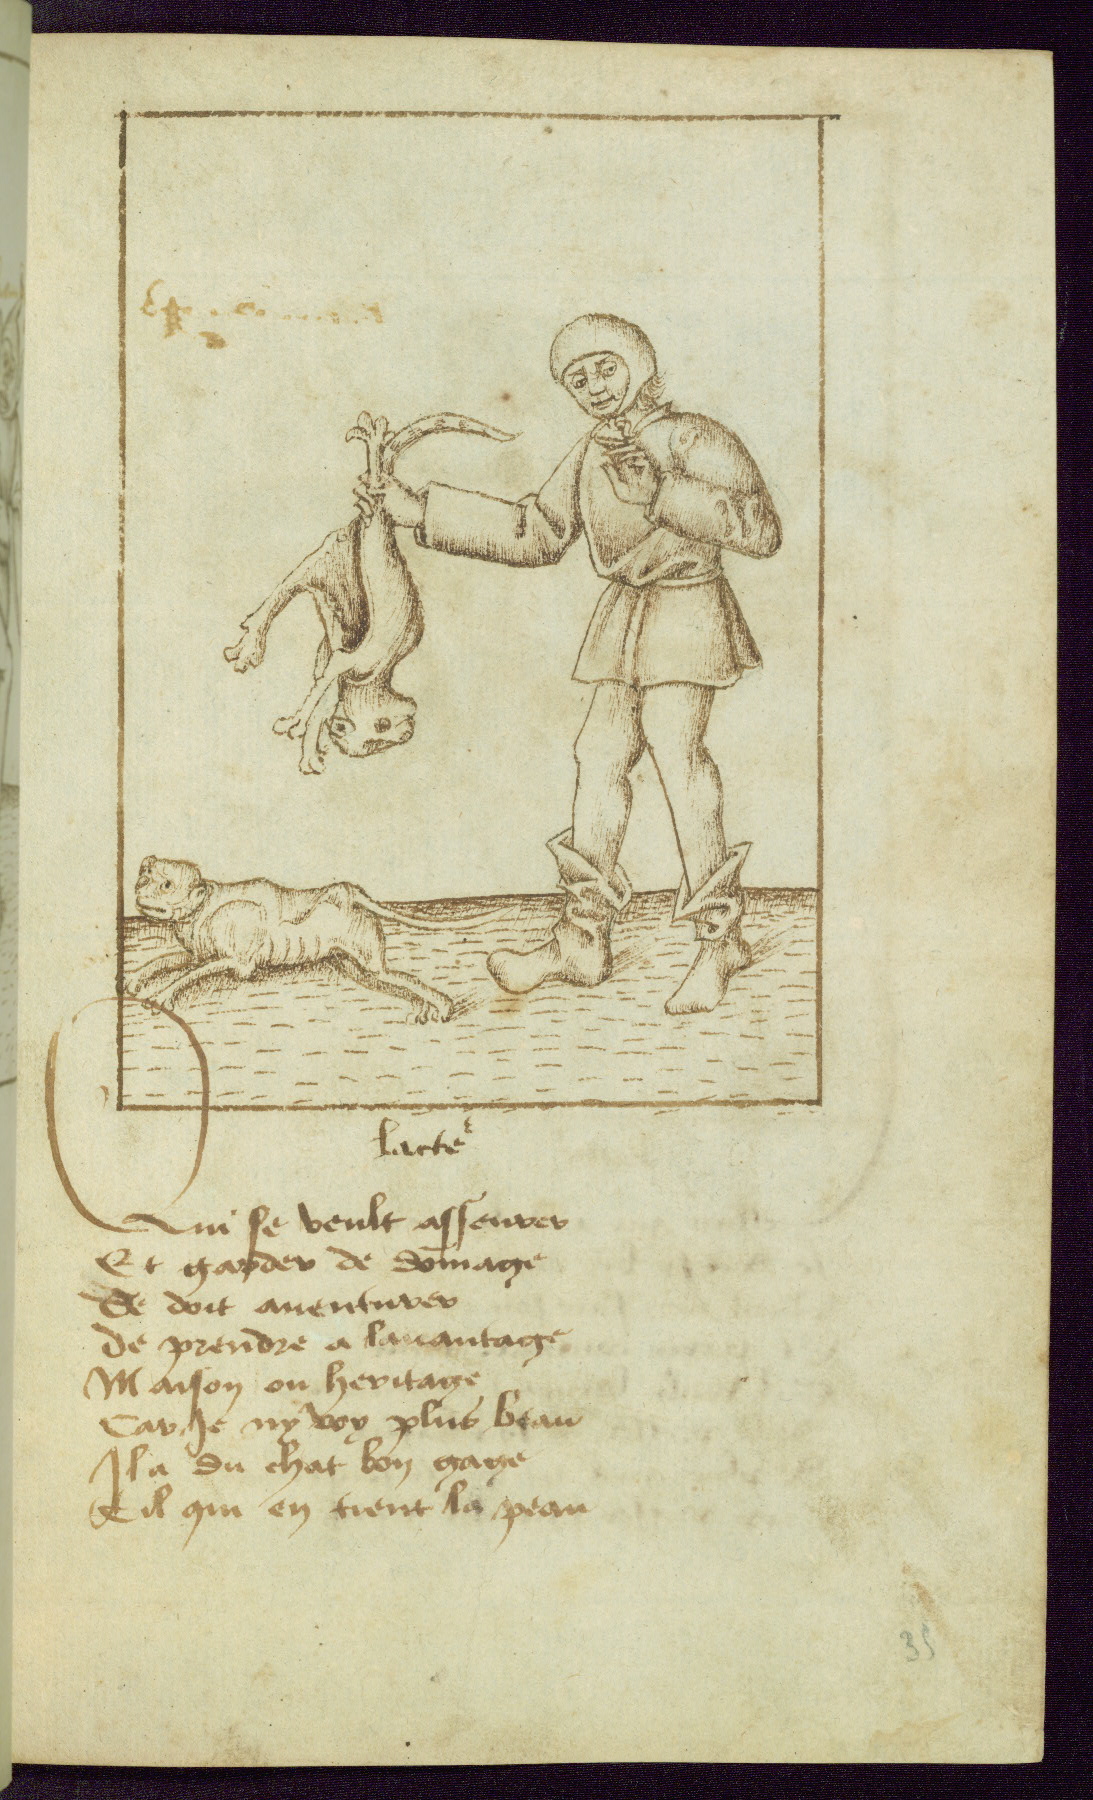 lacte
Qui se veult asseurer
Et garder de dōmage
Se doit auenturer
De prendre a lauantage
Maison ou heritage
Car Je ny voy plus beau
Il a du chat bon gage
Cil qui en tient la peau
35